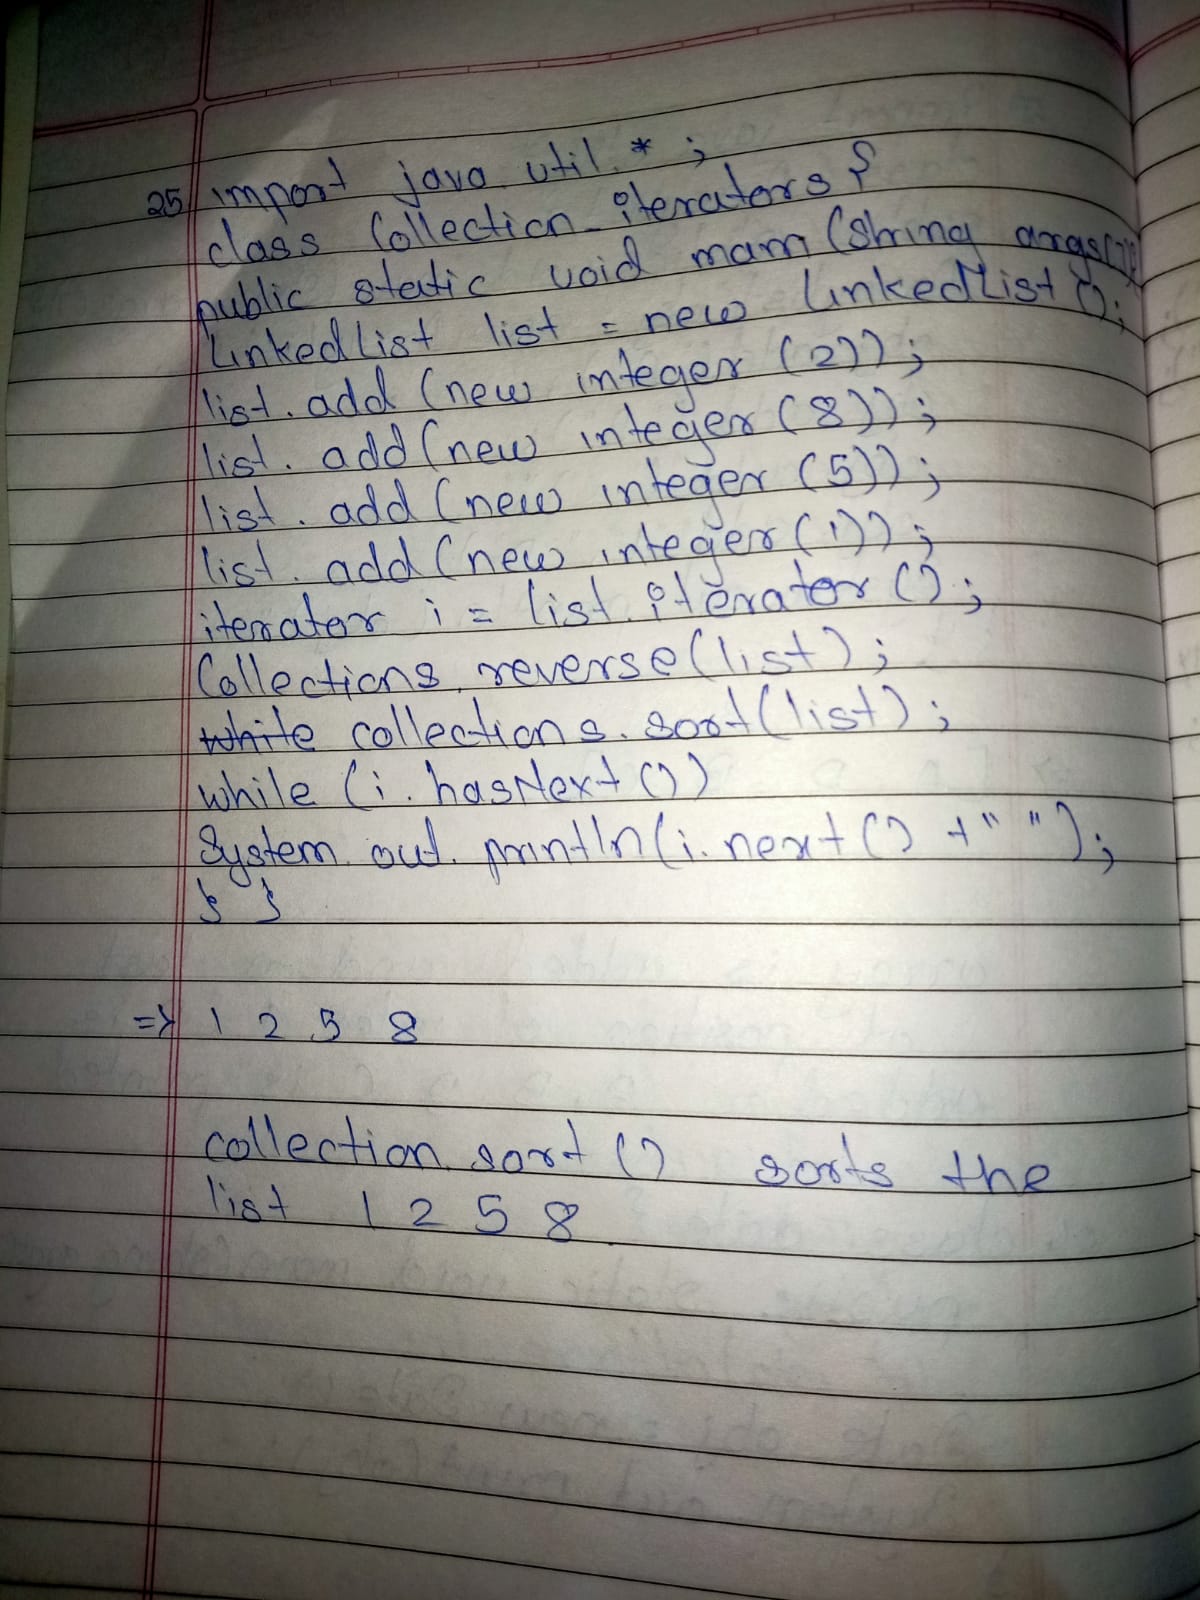 25 import java.util.* ;
class Collection_iterators {
public static void main (String args[]){
LinkedList list = new LinkedList ();
list. add (new integer (2));
list. add (new integer (8));
list. add (new integer (5));
list. add (new integer (1));
iterator i = list.iterator ();
Collections.reverse(list);
while collections.sort(list);
while (i.hasNext ())
System.out.println(i.next () +" ");
} }
=> 1 2 5 8
collection.sort () sorts the
list 1 2 5 8.